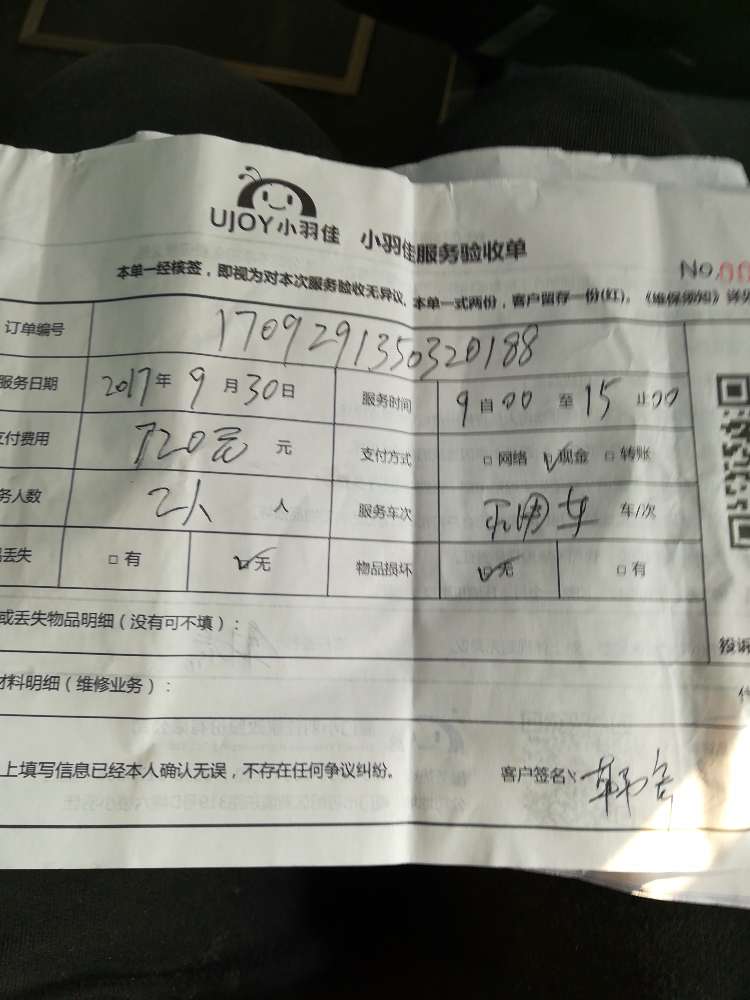 UJOY小羽佳 小羽佳服务验收单
No.00
本单一经核签，即视为对本次服务验收无异议。本单一式两份，客户留存一份(红)。《维保须知》详
订单编号 1709291350320188
服务日期 2017年9月30日 服务时间 9自00至15止00
支付费用 720元 元 支付方式 □网络 ☑现金 □转账
务人数 2人 人 服务车次 车/次
丢失 □有 ☑无 物品损坏 ☑无 □有
或丢失物品明细(没有可不填)：
投诉
材料明细(维修业务)：
上填写信息已经本人确认无误，不存在任何争议纠纷。 客户签名：